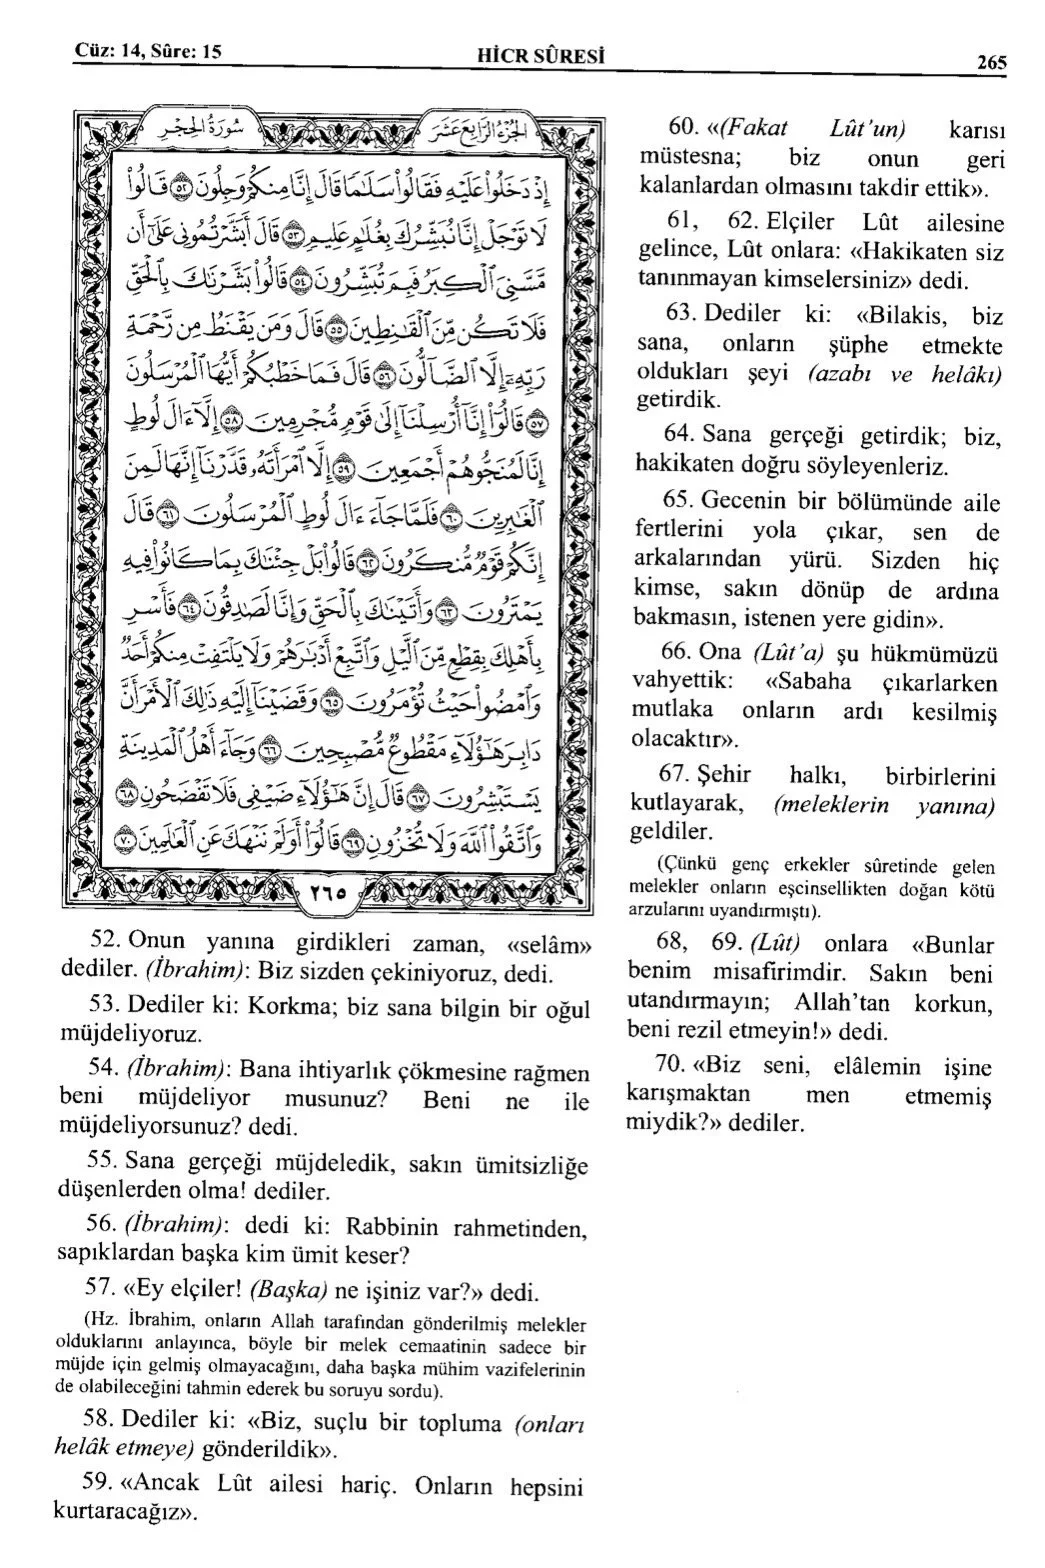 Cüz: 14, Sûre: 15
HİCR SÛRESİ
265
سُورَةُ الحِجْرِ
الجُزْءُ الرَّابِعَ عَشَرَ
إِذْ دَخَلُوا۟ عَلَيْهِ فَقَالُوا۟ سَلَـٰمًا قَالَ إِنَّا مِنكُمْ وَجِلُونَ ٥٢ قَالُوا۟
لَا تَوْجَلْ إِنَّا نُبَشِّرُكَ بِغُلَـٰمٍ عَلِيمٍ ٥٣ قَالَ أَبَشَّرْتُمُونِى عَلَىٰٓ أَن
مَّسَّنِىَ ٱلْكِبَرُ فَبِمَ تُبَشِّرُونَ ٥٤ قَالُوا۟ بَشَّرْنَـٰكَ بِٱلْحَقِّ
فَلَا تَكُن مِّنَ ٱلْقَـٰنِطِينَ ٥٥ قَالَ وَمَن يَقْنَطُ مِن رَّحْمَةِ
رَبِّهِۦٓ إِلَّا ٱلضَّآلُّونَ ٥٦ قَالَ فَمَا خَطْبُكُمْ أَيُّهَا ٱلْمُرْسَلُونَ
٥٧ قَالُوٓا۟ إِنَّآ أُرْسِلْنَآ إِلَىٰ قَوْمٍ مُّجْرِمِينَ ٥٨ إِلَّآ ءَالَ لُوطٍ
إِنَّا لَمُنَجُّوهُمْ أَجْمَعِينَ ٥٩ إِلَّا ٱمْرَأَتَهُۥ قَدَّرْنَآ إِنَّهَا لَمِنَ
ٱلْغَـٰبِرِينَ ٦٠ فَلَمَّا جَآءَ ءَالَ لُوطٍ ٱلْمُرْسَلُونَ ٦١ قَالَ
إِنَّكُمْ قَوْمٌ مُّنكَرُونَ ٦٢ قَالُوا۟ بَلْ جِئْنَـٰكَ بِمَا كَانُوا۟ فِيهِ
يَمْتَرُونَ ٦٣ وَأَتَيْنَـٰكَ بِٱلْحَقِّ وَإِنَّا لَصَـٰدِقُونَ ٦٤ فَأَسْرِ
بِأَهْلِكَ بِقِطْعٍ مِّنَ ٱلَّيْلِ وَٱتَّبِعْ أَدْبَـٰرَهُمْ وَلَا يَلْتَفِتْ مِنكُمْ أَحَدٌ
وَٱمْضُوا۟ حَيْثُ تُؤْمَرُونَ ٦٥ وَقَضَيْنَآ إِلَيْهِ ذَٰلِكَ ٱلْأَمْرَ أَنَّ
دَابِرَ هَـٰٓؤُلَآءِ مَقْطُوعٌ مُّصْبِحِينَ ٦٦ وَجَآءَ أَهْلُ ٱلْمَدِينَةِ
يَسْتَبْشِرُونَ ٦٧ قَالَ إِنَّ هَـٰٓؤُلَآءِ ضَيْفِى فَلَا تَفْضَحُونِ ٦٨
وَٱتَّقُوا۟ ٱللَّهَ وَلَا تُخْزُونِ ٦٩ قَالُوٓا۟ أَوَلَمْ نَنْهَكَ عَنِ ٱلْعَـٰلَمِينَ ٧٠
٢٦٥
52. Onun yanına girdikleri zaman, «selâm»
dediler. (İbrahim): Biz sizden çekiniyoruz, dedi.
53. Dediler ki: Korkma; biz sana bilgin bir oğul
müjdeliyoruz.
54. (İbrahim): Bana ihtiyarlık çökmesine rağmen
beni müjdeliyor musunuz? Beni ne ile
müjdeliyorsunuz? dedi.
55. Sana gerçeği müjdeledik, sakın ümitsizliğe
düşenlerden olma! dediler.
56. (İbrahim): dedi ki: Rabbinin rahmetinden,
sapıklardan başka kim ümit keser?
57. «Ey elçiler! (Başka) ne işiniz var?» dedi.
(Hz. İbrahim, onların Allah tarafından gönderilmiş melekler
olduklarını anlayınca, böyle bir melek cemaatinin sadece bir
müjde için gelmiş olmayacağını, daha başka mühim vazifelerinin
de olabileceğini tahmin ederek bu soruyu sordu).
58. Dediler ki: «Biz, suçlu bir topluma (onları
helâk etmeye) gönderildik».
59. «Ancak Lût ailesi hariç. Onların hepsini
kurtaracağız».
60. «(Fakat Lût'un) karısı
müstesna; biz onun geri
kalanlardan olmasını takdir ettik».
61, 62. Elçiler Lût ailesine
gelince, Lût onlara: «Hakikaten siz
tanınmayan kimselersiniz» dedi.
63. Dediler ki: «Bilakis, biz
sana, onların şüphe etmekte
oldukları şeyi (azabı ve helâkı)
getirdik.
64. Sana gerçeği getirdik; biz,
hakikaten doğru söyleyenleriz.
65. Gecenin bir bölümünde aile
fertlerini yola çıkar, sen de
arkalarından yürü. Sizden hiç
kimse, sakın dönüp de ardına
bakmasın, istenen yere gidin».
66. Ona (Lût'a) şu hükmümüzü
vahyettik: «Sabaha çıkarlarken
mutlaka onların ardı kesilmiş
olacaktır».
67. Şehir halkı, birbirlerini
kutlayarak, (meleklerin yanına)
geldiler.
(Çünkü genç erkekler sûretinde gelen
melekler onların eşcinsellikten doğan kötü
arzularını uyandırmıştı).
68, 69. (Lût) onlara «Bunlar
benim misafirimdir. Sakın beni
utandırmayın; Allah'tan korkun,
beni rezil etmeyin!» dedi.
70. «Biz seni, elâlemin işine
karışmaktan men etmemiş
miydik?» dediler.